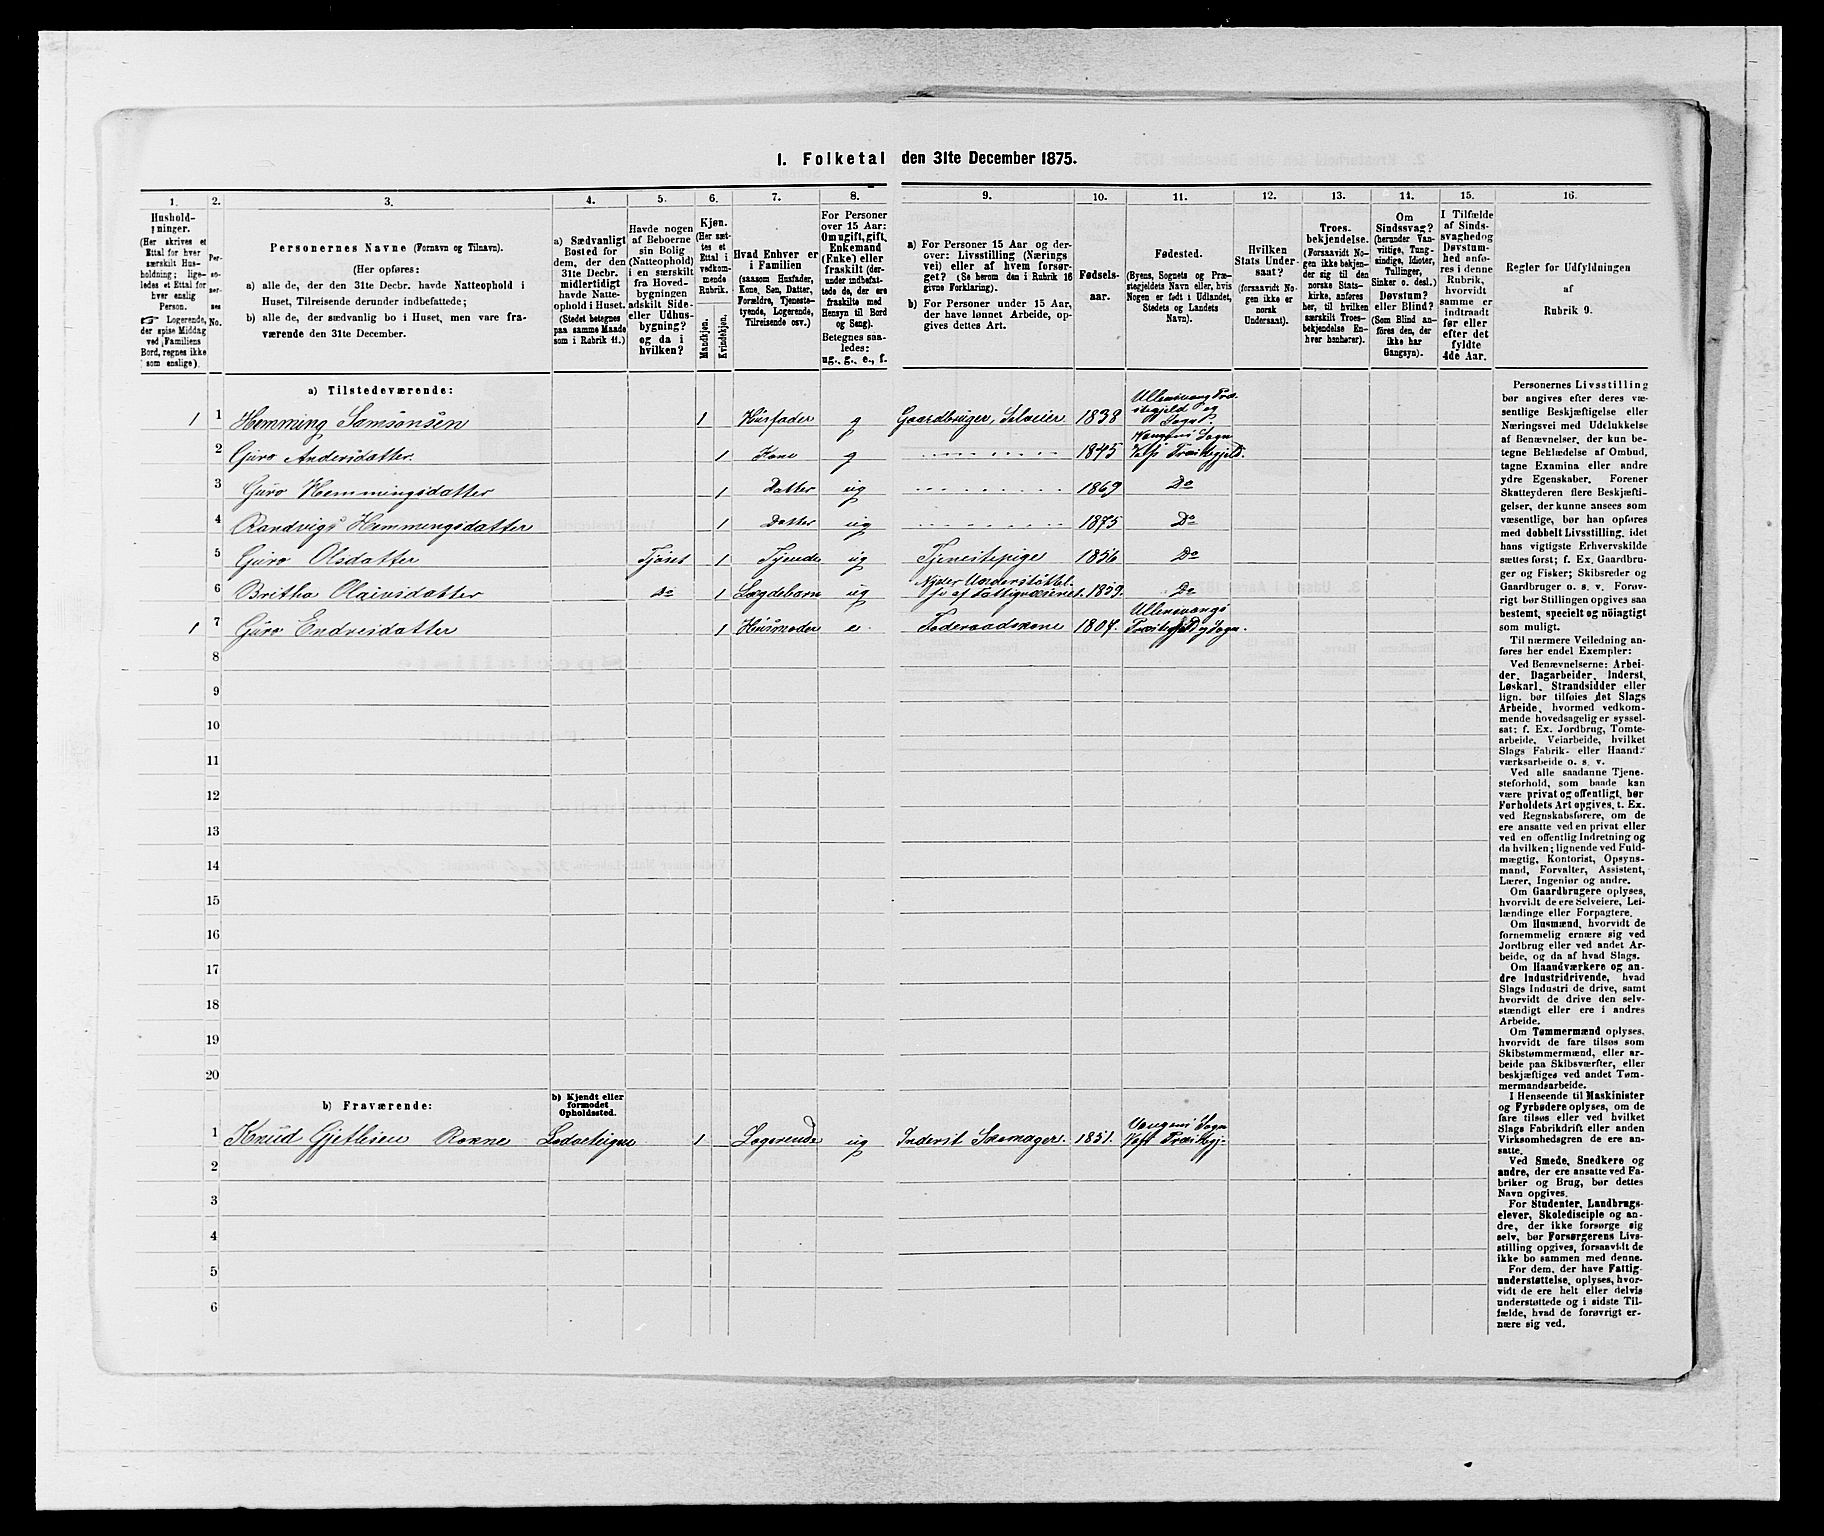 1. Folketal den 31te December 1875.
1. 2. 3. 4. 5. 6. 7. 8. 9. 10. 11. 12. 13. 14. 15. 16.
Hushold-
ninger.
(Her skrives et
Ettal for hver
særskilt Hus-
holdning; lige-
ledes et Ettal for
hver enslig
Person.
☞ Logerende,
der spise Middag
ved Familiens
Bord, regnes ikke
som enslige).
Per-
so-
ner-
nes
No.
Personernes Navne (Fornavn og Tilnavn).
(Her opføres:
a) alle de, der den 31te Decbr. havde Natteophold i
Huset, Tilreisende derunder indbefattede;
b) alle de, der sædvanlig bo i Huset, men vare fra-
værende den 31te December.
a) Sædvanligt
Bosted for
dem, der den
31te Decbr.
midlertidigt
havde Natte-
ophold i Huset.
(Stedet betegnes
paa samme Maade
som i Rubrik 11.)
Havde nogen
af Beboerne
sin Bolig
(Natteophold)
i en særskilt
fra Hoved-
bygningen
adskilt Side-
eller Udhus-
bygning?
og da i
hvilken?
Kjøn.
(Her sæt-
tes et
Ettal i
vedkom-
mende
Rubrik.
Mandkjøn.
Kvindekjøn.
Hvad Enhver er
i Familien
(saasom Husfader,
Kone, Søn, Datter,
Forældre, Tjeneste-
tyende, Logerende,
Tilreisende osv.)
For Personer
over 15 Aar:
Om ugift, gift,
Enkemand
(Enke) eller
fraskilt (der-
under indbefat-
tede de, der ere
fraskilte med
Hensyn til Bord
og Seng).
Betegnes saa-
ledes:
ug., g., e., f.
a) For Personer 15 Aar og der-
over: Livsstilling (Nærings
vei) eller af hvem forsør-
get? (Se herom den i Rubrik 16
givne Forklaring).
b) For Personer under 15 Aar,
der have lønnet Arbeide, op-
gives dettes Art.
Fødsels-
aar.
Fødested.
(Byens, Sognets og Præ-
stegjeldets Navn eller, hvis
Nogen er født i Udlandet,
Stedets og Landets
Navn).
Hvilken
Stats Under-
saat?
(forsaavidt No-
gen ikke er
norsk
Undersaat).
Troes-
bekjendelse.
(Forsaavidt No-
gen ikke bekjen-
der sig til den
norske Stats-
kirke, anføres
her, til hvilken
særskilt Troes-
bekjendelse En-
hver henhører).
Om
Sindssvag?
(herunder Van-
vittige, Tung-
sindige, Idioter,
Tullinger,
Sinker o. desl.)
Døvstum?
eller Blind?
(Som Blind an-
føres den, der
ikke har
Gangsyn).
I Tilfælde
af Sinds-
svaghed og
Døvstum-
hed anfø-
res i denne
Rubrik,
hvorvidt
samme er
indtraadt
før eller
efter det
fyldte
4de Aar.
Regler for Udfyldningen
af
Rubrik 9.
a) Tilstedeværende:
1 1 Hemming Samsonsen 1 Husfader g Gaardbruger, Selveier 1838 Ullensvang Præ-
stegjeld og
Sogn.
2 Guro Andersdatter. 1 Kone g 1845 Vangens Sogn
Voss Præstegjeld.
3 Guro Hemmingsdatter 1 Datter ug 1869 Do
4 Randvig Hemmingsdatter 1 Datter ug 1875 Do
5 Guro Olsdatter Fjøset 1 Tjende ug Tjenestepige 1856 Do
6 Britha Olaivsdatter Do 1 Lægdebarn ug Nyder Understøttel-
se af Fattigvæsenet. 1859. Do
1 7 Guro Endresdatter 1 Husmoder e. Føderaadskone 1807. Ullensvangs
Præstegjeld og Sogn.
8
9
10
11
12
13
14
15
16
17
18
19
20
b) Fraværende:
b) Kjendt eller
formodet
Opholdssted.
1 Knud Gjetleien Rokne 1 Logerende ug Inderst Skomager. 1851. Vangens Sogn
Voss Præstegj-
2
3
4
5
6
Personernes Livsstilling
bør angives efter deres væ-
sentlige Beskjæftigelse eller
Næringsvei med Udelukkelse
af Benævnelser, der kun be-
tegne Beklædelse af Ombud,
tagne Examina eller andre
ydre Egenskaber. Forener
Skatteyderen flere Beskjæfti-
gelser, der kunne ansees som
væsentlige, bør han opføres
med dobbelt Livsstilling, idet
hans vigtigste Erhvervskilde
sættes først; f. Ex. Gaardbru-
ger og Fisker; Skibsreder og
Gaardbruger o. s. v. Forøv-
rigt bør Stillingen opgives saa
bestemt, specielt og nøiagtigt
som muligt.
Til nærmere Veiledning an-
føres her endel Exempler:
Ved Benævnelserne: Arbei-
der, Dagarbeider, Inderst,
Løskarl, Strandsidder eller
lign. bør tilføies det Slags
Arbeide, hvormed vedkom-
mende hovedsagelig er syssel-
sat; f. Ex. Jordbrug, Tomte-
arbeide, Veiarbeide, hvilket
Slags Fabrik- eller Haand-
værksarbeide o. s. v.
Ved alle saadanne Tjene-
steforhold, som baade kan
være privat og offentligt, bør
Forholdets Art opgives, t. Ex.
ved Regnskabsførere, om de
ere ansatte ved en privat eller
ved en offentlig Indretning og
da hvilken; lignende ved Fuld-
mægtig, Kontorist, Opsyns-
mand, Forvalter, Assistent,
Lærer, Ingeniør og andre.
Om Gaardbrugere oplyses,
hvorvidt de ere Selveiere, Lei-
lændinge eller Forpagtere.
Om Husmænd, hvorvidt de
fornemmelig ernære sig ved
Jordbrug eller ved andet Ar-
beide, og da af hvad Slags.
Om Haandværkere og an-
dre Industridrivende, hvad
Slags Industri de drive, samt
hvorvidt de drive den selv-
stændigt eller ere i andres
Arbeide.
Om Tømmermænd oplyses,
hvorvidt de fare tilsøs som
Skibstømmermænd, eller ar-
beide paa Skibsværfter, eller
beskjæftiges ved andet Tøm-
mermandsarbeide.
I Henseende til Maskinister
og Fyrbødere oplyses, om de
fare tilsøs eller ved hvilket
Slags Fabrikdrift eller anden
Virksomhedsgren de ere an-
satte.
Ved Smede, Snedkere og
andre, der ere ansatte ved Fa-
briker og Brug, bør dettes
Navn opgives.
For Studenter, Landbrugs-
elever, Skoledisciple og an-
dre, der ikke forsørge sig
selv, bør Forsørgerens Livs-
stilling opgives, forsaavidt de
ikke bo sammen med denne.
For dem, der have Fattig-
understøttelse, oplyses, hvor-
vidt de ere helt eller delvis
understøttede og i sidste Til-
fælde, hvad de forøvrigt er-
nære sig ved.